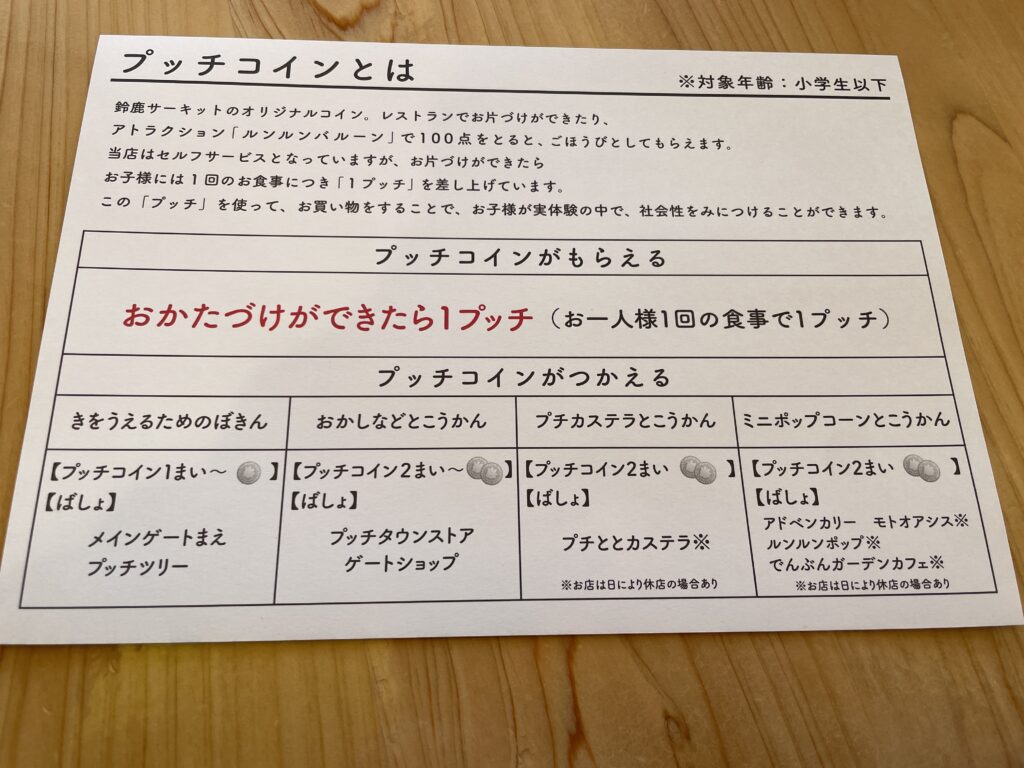 プッチコインとは
※対象年齢：小学生以下
鈴鹿サーキットのオリジナルコイン。レストランでお片づけができたり、
アトラクション「ルンルンバルーン」で100点をとると、ごほうびとしてもらえます。
当店はセルフサービスとなっていますが、お片づけができたら
お子様には1回のお食事につき「1プッチ」を差し上げています。
この「プッチ」を使って、お買い物をすることで、お子様が実体験の中で、社会性をみにつけることができます。
プッチコインがもらえる
おかたづけができたら1プッチ（お一人様1回の食事で1プッチ）
プッチコインがつかえる
きをうえるためのぼきん
【プッチコイン1まい～ 】
【ばしょ】
メインゲートまえ
プッチツリー
おかしなどとこうかん
【プッチコイン2まい～ 】
【ばしょ】
プッチタウンストア
ゲートショップ
プチカステラとこうかん
【プッチコイン2まい 】
【ばしょ】
プチととカステラ※
※お店は日により休店の場合あり
ミニポップコーンとこうかん
【プッチコイン2まい 】
【ばしょ】
アドベンカリー モトオアシス※
ルンルンポップ※
でんぷんガーデンカフェ※
※お店は日により休店の場合あり